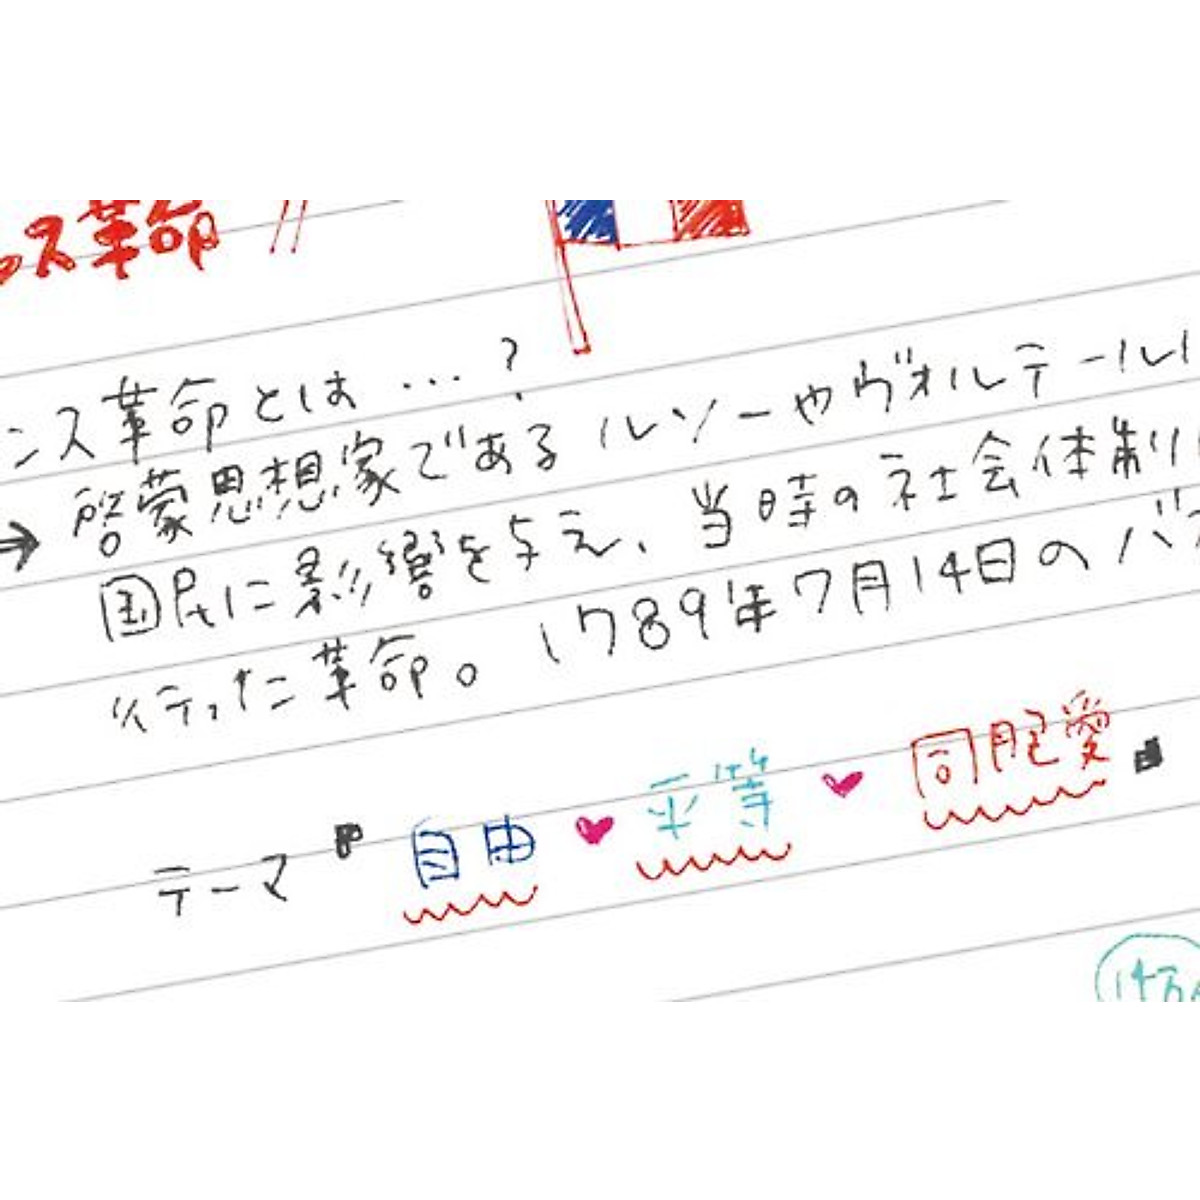 ンス革命 //
ンス革命とは…?
→ 啓蒙思想家である ルソーやヴォルテール
国民に影響を与え、当時の社会体制
行った革命。1789年7月14日のバス
テーマ『自由♥平等♥同胞愛』